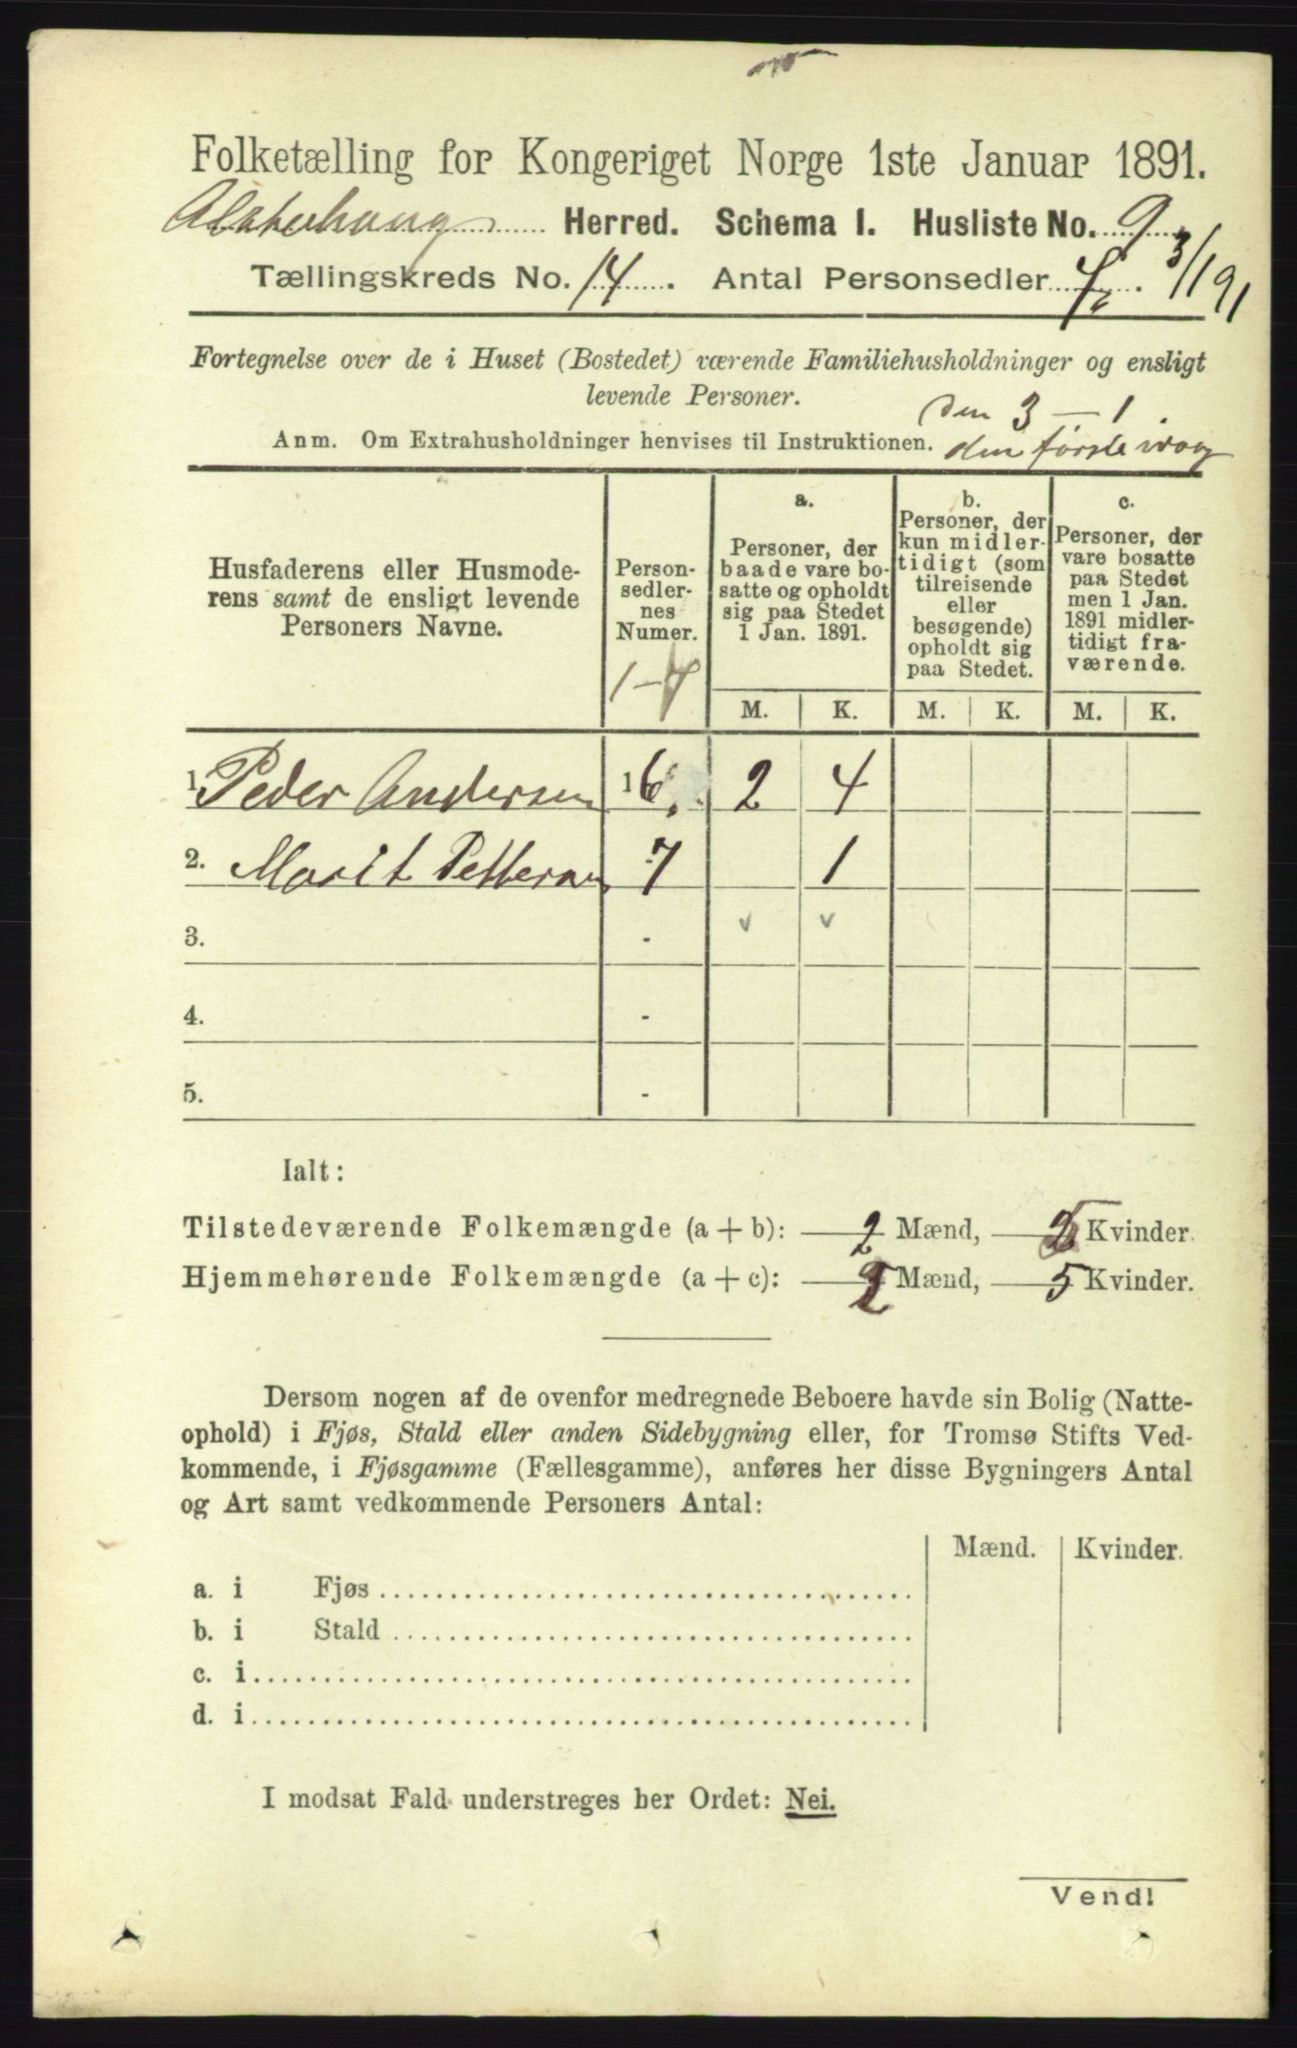 Folketælling for Kongeriget Norge 1ste Januar 1891.
Alstenhaug Herred. Schema I. Husliste No. 9
3/1 91
Tællingskreds No. 14. Antal Personsedler 7.
Fortegnelse over de i Huset (Bostedet) værende Familiehusholdninger og ensligt
levende Personer.
den 3 - 1
Anm. Om Extrahusholdninger henvises til Instruktionen.
den første
Husfaderens eller Husmode-
rens samt de ensligt levende
Personers Navne.
Person-
sedler-
nes
Numer.
1-7
a.
Personer, der
baade vare bo-
satte og opholdt
sig paa Stedet
1 Jan. 1891.
b.
Personer, der
kun midler-
tidigt (som
tilreisende
eller
besøgende)
opholdt sig
paa Stedet.
c.
Personer, der
vare bosatte
paa Stedet
men 1 Jan.
1891 midler-
tidigt fra-
værende.
M. K. M. K. M. K.
1. Peder Andersen 1 6. 2 4
2. Marit Pettersen 7 1
3. -
4. -
5. -
Ialt:
Tilstedeværende Folkemængde (a + b): 2 Mænd, 5 Kvinder.
Hjemmehørende Folkemængde (a + c): 2 Mænd, 5 Kvinder.
Dersom nogen af de ovenfor medregnede Beboere havde sin Bolig (Natte-
ophold) i Fjøs, Stald eller anden Sidebygning eller, for Tromsø Stifts Ved-
kommende, i Fjøsgamme (Fællesgamme), anføres her disse Bygningers Antal
og Art samt vedkommende Personers Antal:
Mænd. Kvinder.
a. i Fjøs
b. i Stald
c. i
d. i
I modsat Fald understreges her Ordet: Nei.
Vend!